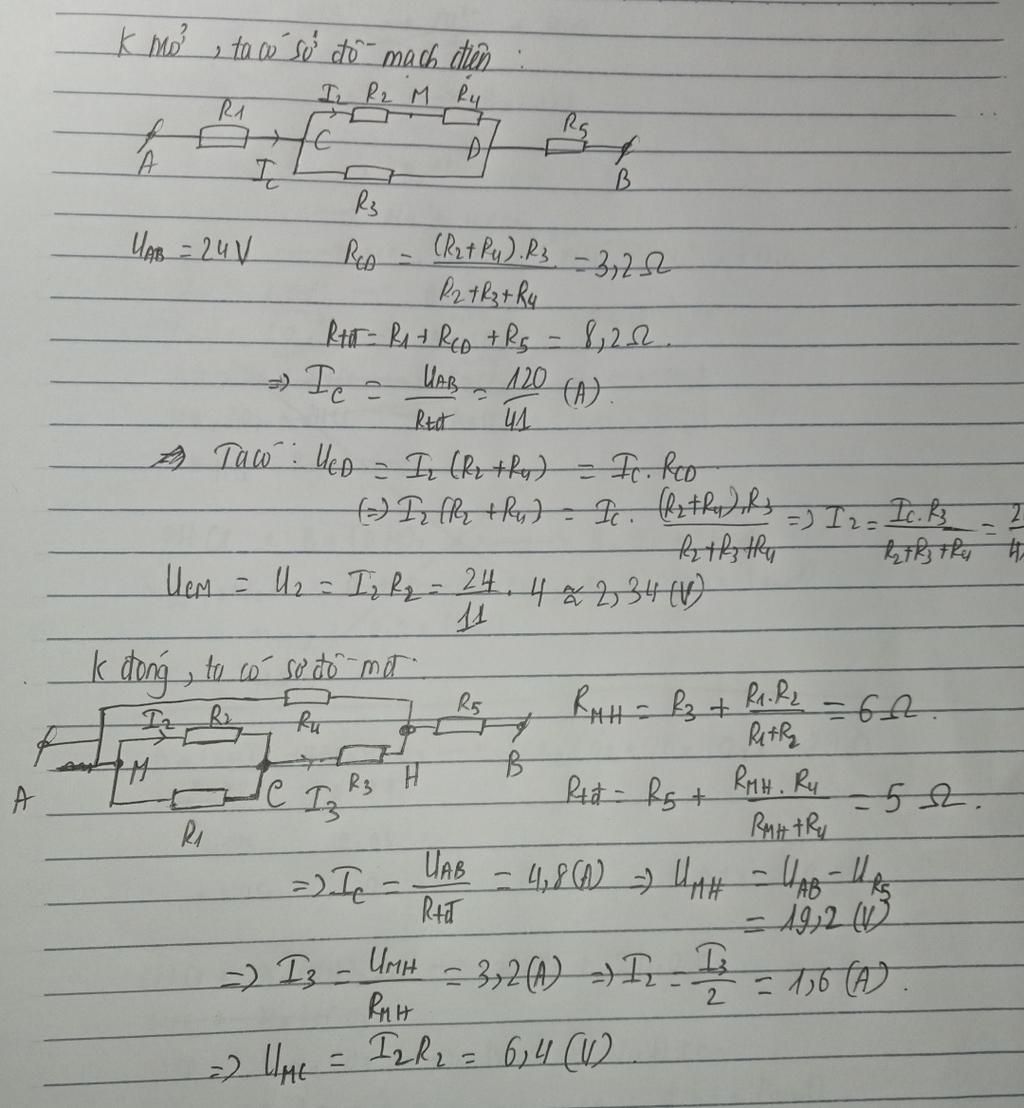 K mở, ta có sơ đồ mạch điện :
I2 R2 M R4
R1 R5
A C D B
Ic
R3
UAB = 24V RCD = (R2+R4).R3 / R2+R3+R4 = 3,2Ω
Rtđ = R1 + RCD + R5 = 8,2Ω.
=> Ic = UAB / Rtđ = 120 / 41 (A).
=> Ta có : UCD = I2 (R2+R4) = Ic. RCD
(=) I2 (R2 + R4) = Ic. (R2+R4).R3 / R2+R3+R4 => I2 = Ic.R3 / R2+R3+R4 =
UCM = U2 = I2R2 = 24 / 11 . 4 ≈ 2,34 (V)
K đóng, ta có sơ đồ mđ.
I2 R2 R4 R5
RMH = R3 + R1.R2 / R1+R2 = 6Ω.
A M C I3 R3 H B
R1
Rtđ = R5 + RMH.R4 / RMH+R4 = 5 Ω.
=> Ic = UAB / Rtđ = 4,8(A) => UMH = UAB - UR5
= 19,2 (V)
=> I3 = UMH / RMH = 3,2(A) => I2 = I3 / 2 = 1,6 (A).
=> UMC = I2R2 = 6,4 (V).